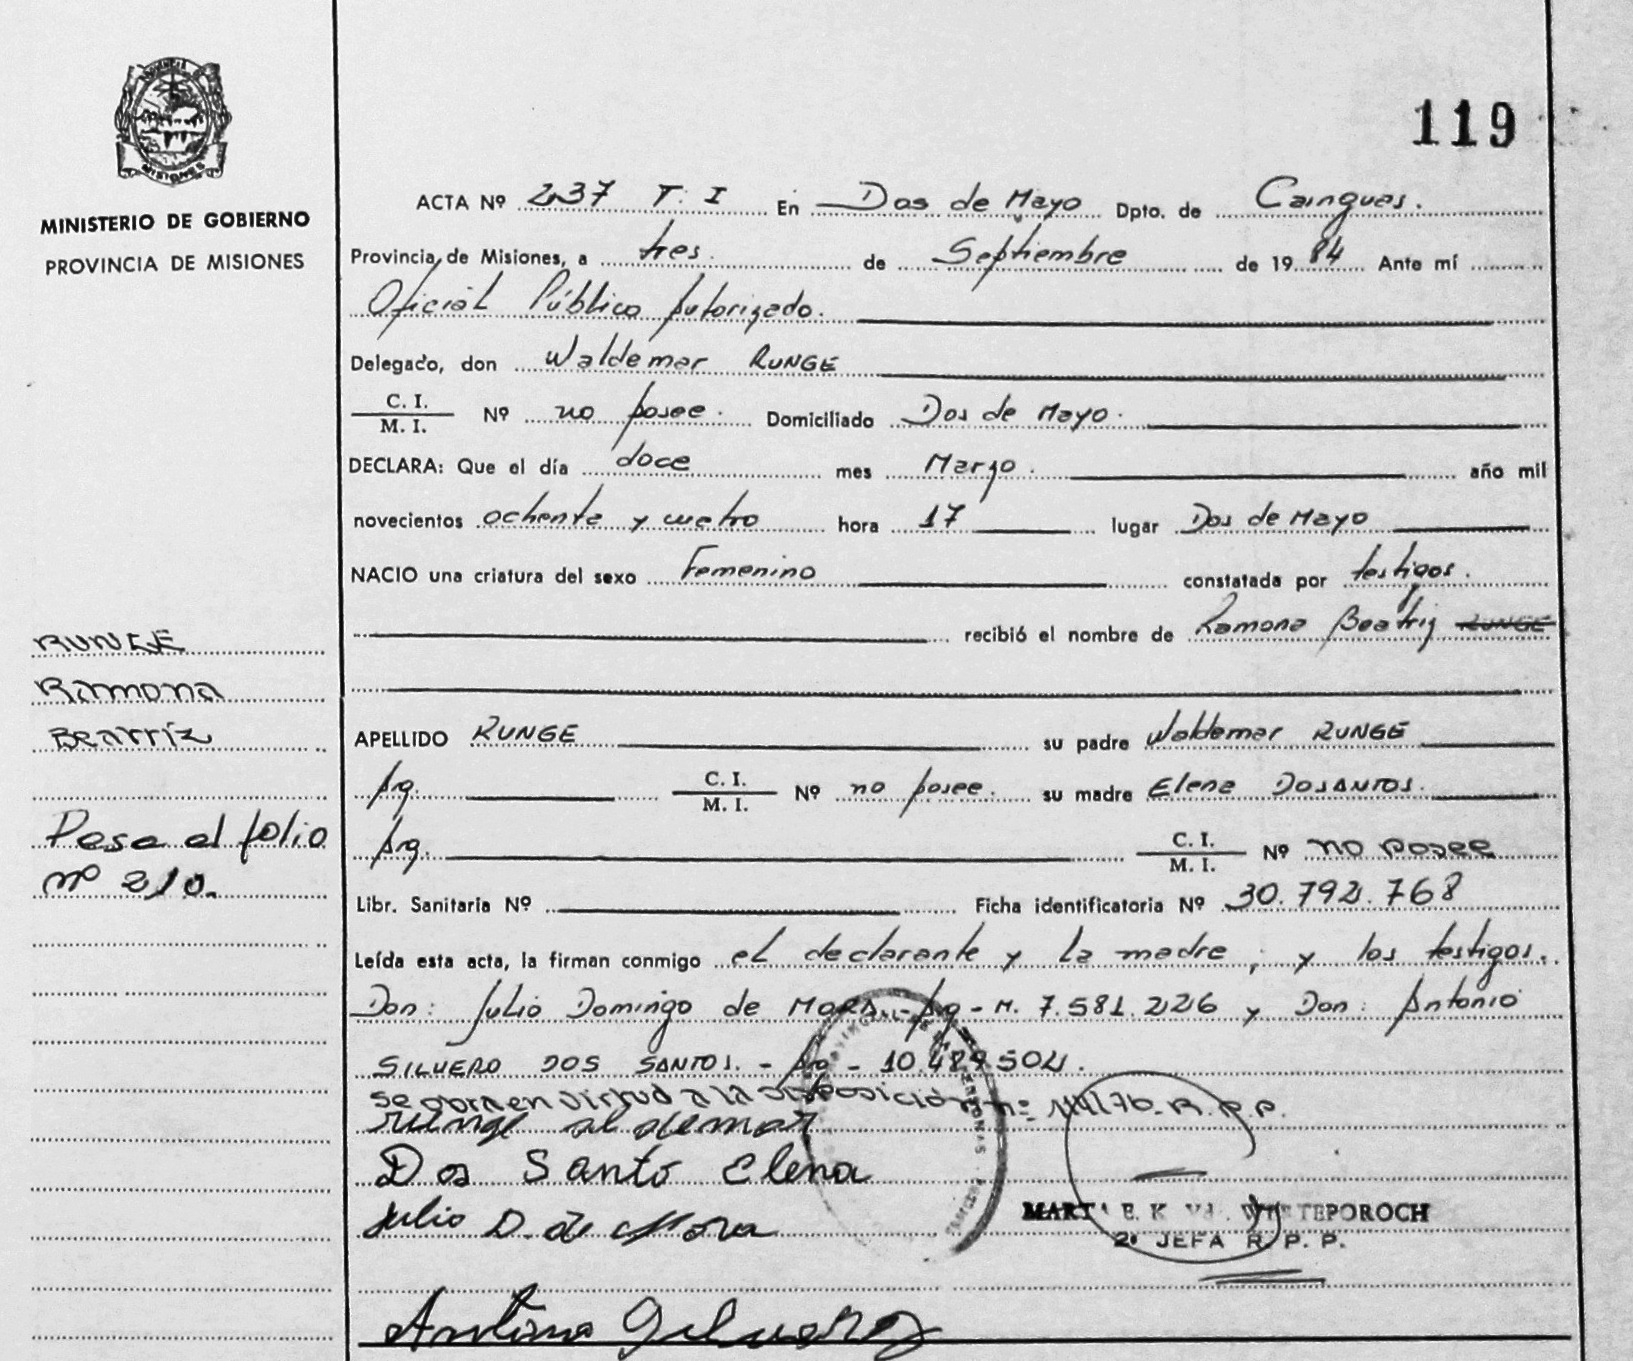 119
MISIONES
MINISTERIO DE GOBIERNO
PROVINCIA DE MISIONES
ACTA Nº 237 T. I En Dos de Mayo Dpto. de Cainguas.
Provincia de Misiones, a tres. de Septiembre de 19 84 Ante mí
Oficial Público Autorizado.
Delegado, don Waldemar RUNGE
C. I. / M. I. Nº no posee. Domiciliado Dos de Mayo.
DECLARA: Que el día doce mes Marzo. año mil
novecientos ochenta y cuatro hora 17 lugar Dos de Mayo
NACIO una criatura del sexo Femenino constatada por testigos.
recibió el nombre de Ramona Beatriz RUNGE
RUNGE
Ramona
Beatriz
APELLIDO RUNGE su padre Waldemar RUNGE
Arg. C. I. / M. I. Nº no posee. su madre Elena DOSANTOS.
Pasa al folio
nº 210.
Arg. C. I. / M. I. Nº no posee
Libr. Sanitaria Nº Ficha identificatoria Nº 30.792.768
Leída esta acta, la firman conmigo el declarante y la madre, y los testigos.
Don: Julio Domingo de MORA - Arg - M. 7.581.226 y Don: Antonio
SILVERO DOS SANTOS. - Arg - 10.489504.
se obra en virtud a la disposición nº R.P.P.
Runge
Dos Santo Elena
Julio D. de Mora
MARTA E. K TEPOROCH
2º JEFA R. P. P.